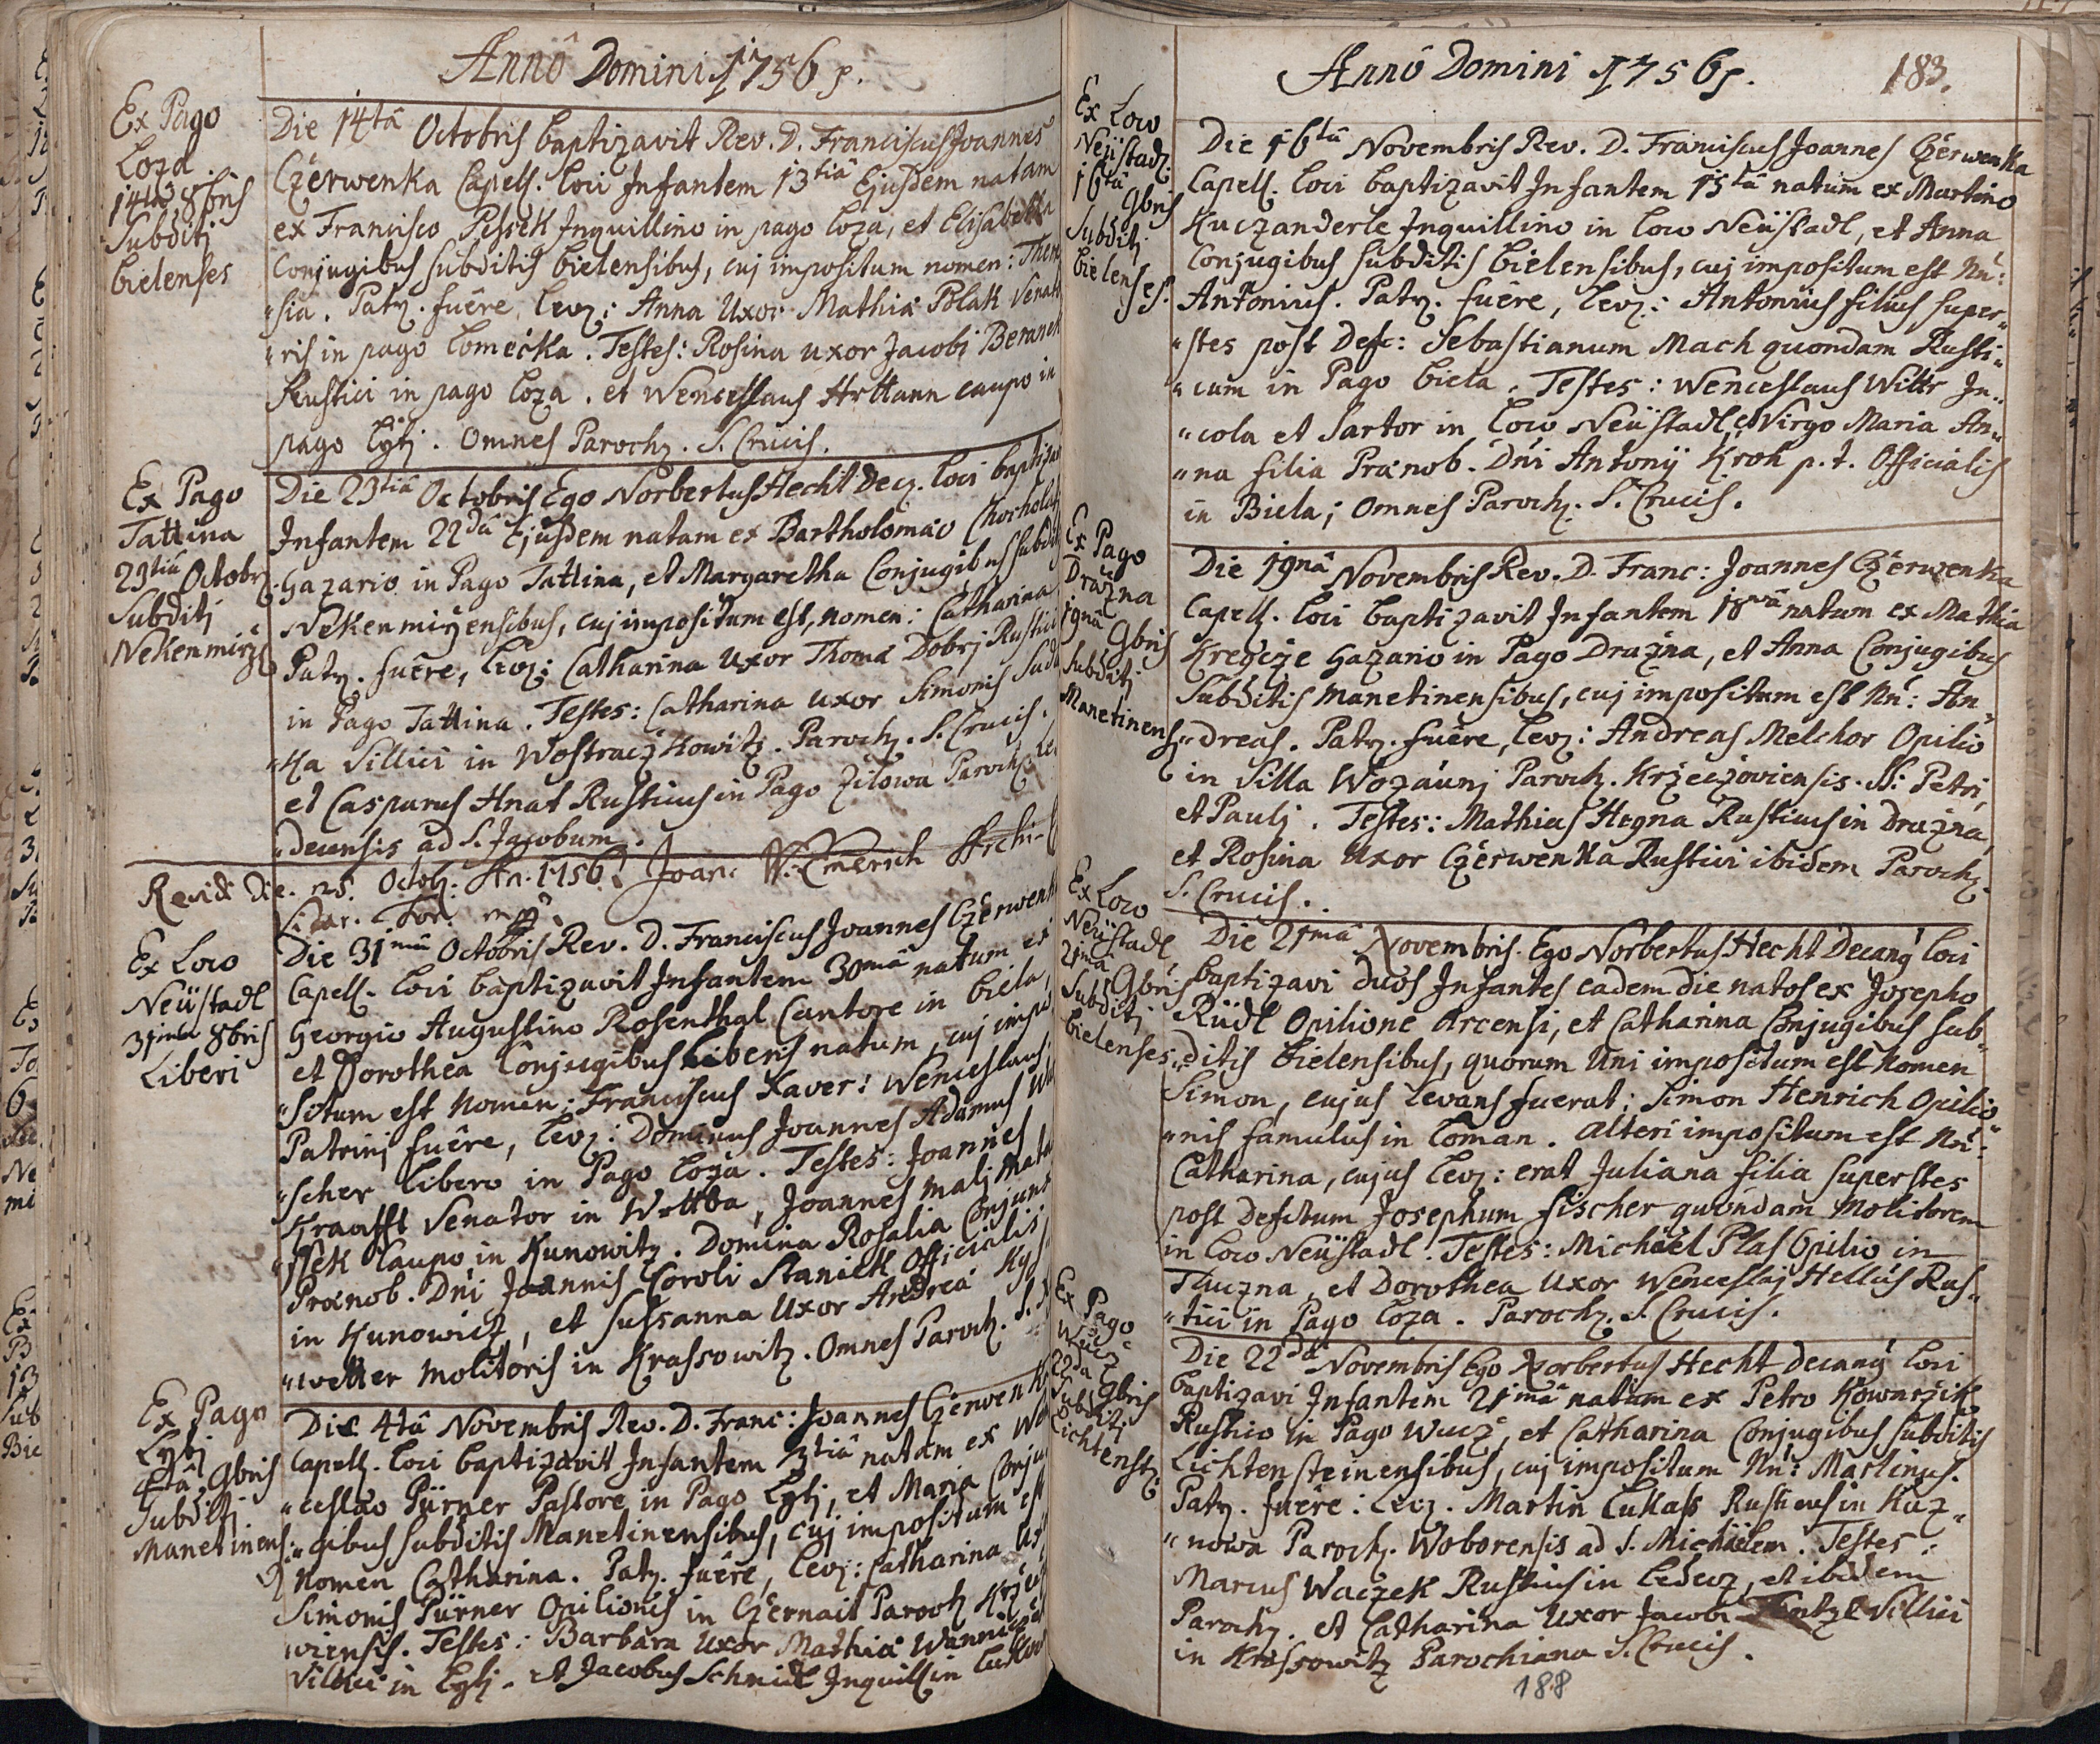 Annô Domini 1756s.
Ex Pago
Loza
14ta 8bris
Subditi
bielenses
Die 14tâ Octobris baptizavit Rev. D. Franciscus Joannes
Czerwenka Capell. loci Infantem 13tiâ Ejusdem natam
ex Francisco Pessek Inquillino in pago loza, et Elisabetha
Conjugibus subditis bielensibus, cuj impositum nomen: There
"sia. Patr. fuêre, lev: Anna Uxor Mathiæ Polak Senato
"ris in pago lomicka. Testes: Rosina uxor Jacobi Beranek
Rustici in pago loza. et Wenceslaus Hrttann caupo in
pago lyti. Omnes Paroch. S. Crucis.
Ex Pago
Tattina
23tiâ Octobr
Subditi
Nekenmirz
Die 23tiâ Octobris Ego Norbertus Hecht Dec. loci baptizavi
Infantem 22dâ Ejusdem natam ex Bartholomæo Chocholaty
Gazario in Pago Tattina, et Margaretha Conjugibus subdit
Nekenmirzensibus, cuj impositum est, nomen: Catharina
Patr. fuêre, lev: Catharina Uxor Thomæ Dobrj Rustici
in Pago Tattina. Testes: Catharina uxor Simonis Sud
"ka Villici in Wostraczkowitz. Paroch. S. Crucis.
et Casparus Hnat Rusticus in Pago Zilowa Paroch. Le
"decensis ad S. Jacobum.
Revidi Die. 25. Octob: An. 1756. Joan: W. Emerich Archi-
Ex Loco
Neüstadl
31ma 8bris
Liberi
Die 31mâ Octobris Rev. D. Franciscus Joannes Czerwenka
Capell. loci baptizavit Infantem 30mâ natum ex
Georgio Augustino Rosenthal Cantore in biela,
et Dorothea Conjugibus liberis natum, cuj impo
"situm est nomen: Franciscus Xaver: Wenceslaus:
Patrini fuêre, lev: Dominus Joannes Adamus
"scher libero in Pago loza. Testes: Joannes
Kraafft Senator in Wottba, Joannes Malj Mata
"ssek Caupo in Kunowitz. Domina Rosalia Conjunx
Prænob. Dni Joannis Caroli Staniek Officialis
in Kunowicz, et Sussanna Uxor Andreæ Kys
"wetter Molitoris in Krassowitz. Omnes Paroch. S.
Ex Pago
Lytj
4tâ 9bris
Subditi
Manetinens:
Die 4tâ Novembris Rev. D. Franc: Joannes Czerwenka
Capell. loci baptizavit Infantem 3tiâ natam ex Wen
"ceslao Pürner Pastore in Pago Lytj, et Maria Conju
"gibus subditis Manetinensibus, cuj impositum est
Nomen Catharina. Patr. fuêre, lev: Catharina Ux
Simonis Pürner Opilionis in Czernait Paroch Krzeczo
wiensis. Testes: Barbara Uxor Mathiæ Wannie
Villici in Lytj. et Jacobus Schmidl Inquill in
Annô Domini 1756s.
183.
Ex Loco
Neüstadl
16tâ 9bris
Subditi
bielenses.
Die 16tâ Novembris Rev. D. Franciscus Joannes Czerwenka
Capell. loci baptizavit Infantem 15tâ natum ex Martino
Kuczanderle Inquillino in loco Neüstadl, et Anna
Conjugibus subditis bielensibus, cuj impositum est Nn:
Antonius. Patr. fuêre, lev: Antonius filius super-
"stes post Defc: Sebastianum Mach quondam Rusti-
"cum in Pago biela. Testes: Wenceslaus Wittr In-
"cola et Sartor in loco Neüstadl, et Virgo Maria An-
"na filia Prænob. Dni Antonij Kroh p. t. Officialis
in Biela; Omnes Paroch. S. Crucis.
Ex Pago
Drazna
19nâ 9bris
Subditi
Manetinens
Die 19nâ Novembris Rev. D. Franc: Joannes Czerwenka
Capell. loci baptizavit Infantem 18vâ natum ex Mathia
Kregcze Gazario in Pago Drazna, et Anna Conjugibus
Subditis Manetinensibus, cuj impositum est Nn: An
"dreas. Patr. fuêre, lev: Andreas Melchor Opilio
in Villa Wozaunj Paroch. Krzeczoviensis. SS: Petri,
et Pauli. Testes: Mathias Hegna Rusticus in Drazna,
et Rosina Uxor Czerwenka Rustici ibidem Paroch.
S. Crucis.
Ex Loco
Neüstadl
21ma 9bris
Subditi
bielenses
Die 21mâ Novembris. Ego Norbertus Hecht Decang loci
baptizavi duos Infantes eadem die natos ex Josepho
Rüdl Opilione Arcensi, et Catharina Conjugibus sub-
"ditis bielensibus, quorum Uni impositum est nomen
Simon, cujus levans fuerat: Simon Henrich Opilio
"nis famulus in loman. Alteri impositum est Nn:
Catharina, cujus lev: erat Juliana filia superstes
post Defctum Josephum Fischer quondam Molitorem
in loco Neüstadl. Testes: Michaël Plas Opilio in
Tluczna, et Dorothea Uxor Wenceslaj Hellus Rus-
"tici in Pago loza. Paroch. S. Crucis.
Ex Pago
Wucz
22da 9bris
Subditi
Lichtenst:
Die 22dâ Novembris Ego Norbertus Hecht Decang loci
baptizavi Infantem 21mâ natum ex Petro Kowarzik
Rustico in Pago Wucz, et Catharina Conjugibus subditis
Lichtensteinensibus, cuj impositum Nn: Martinus.
Patr. fuêre: Lev. Martin Lukass Rusticus in Kaz-
"nowa Paroch. Woborensis ad S. Michaëlem. Testes:
Marcus Waczek Rusticus in Ledecz, et ibidem
Paroch. et Catharina Uxor Jacobi Villici
in Krassowitz Parochiana S. Crucis.
188